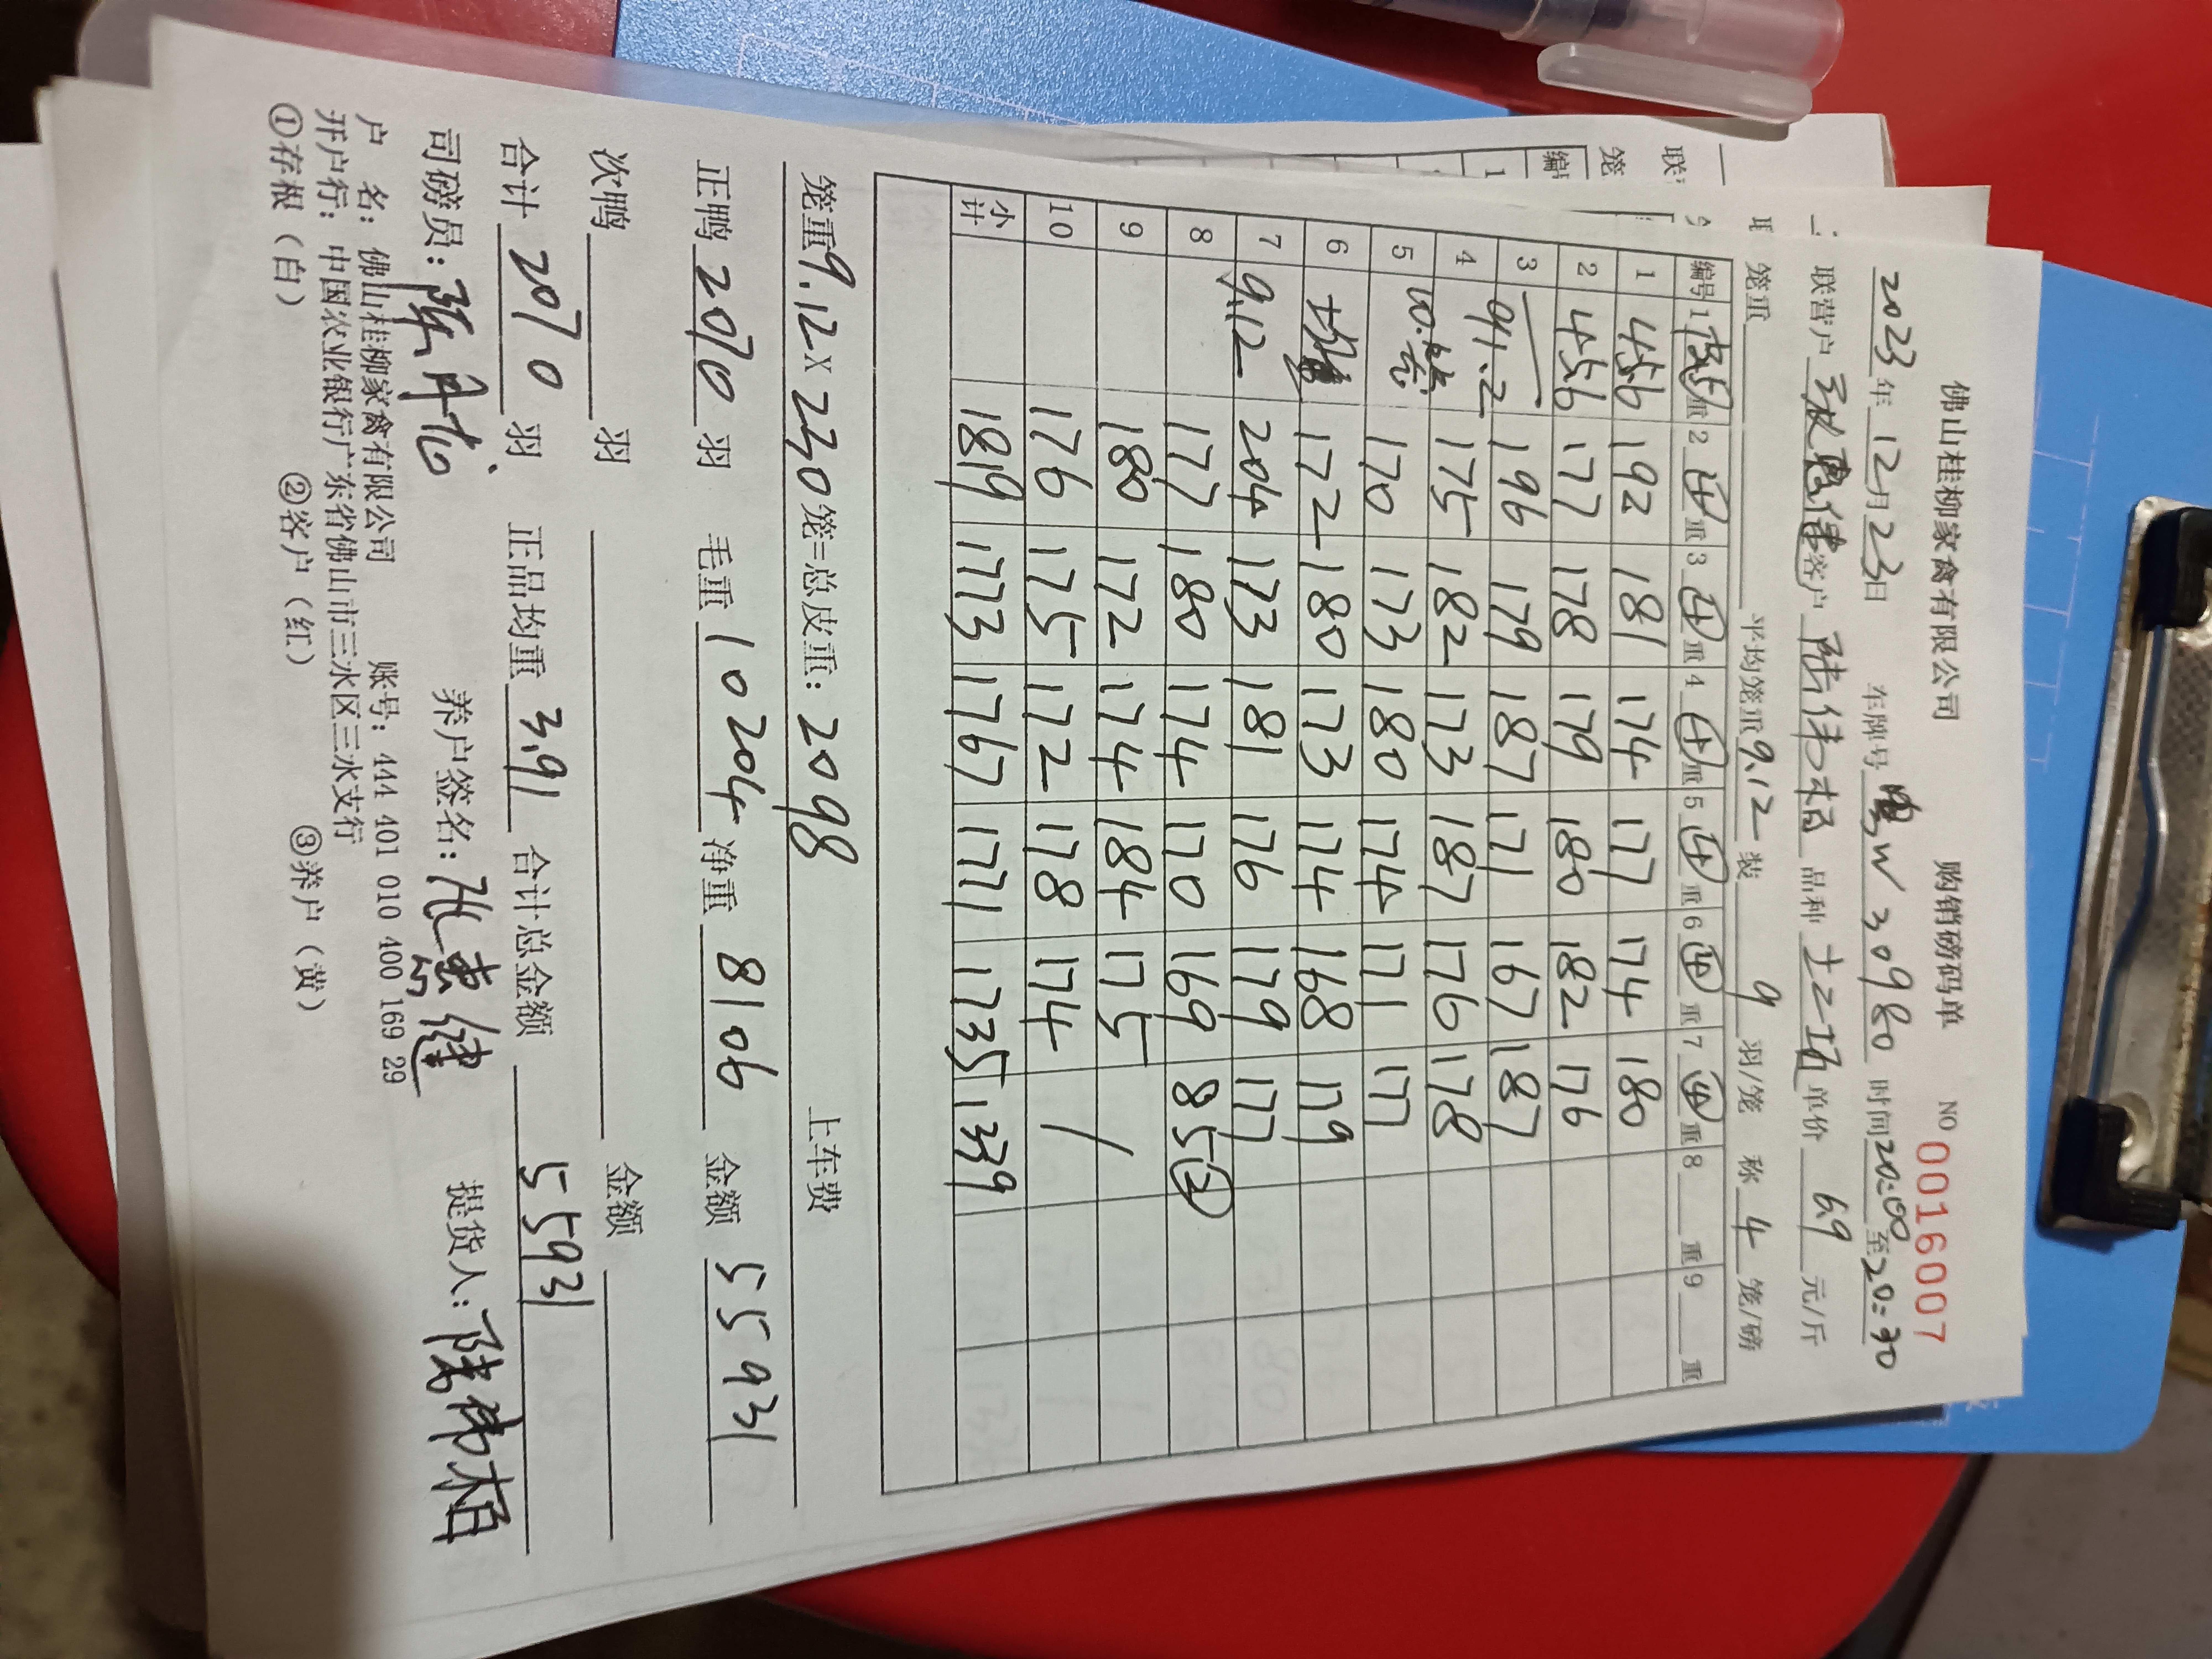 佛山桂柳家禽有限公司 购销磅码单 NO 0016007
2023年12月23日 车牌号 粤W30980 时间20:00至20:30
联营户 张惠健 客户 陆伟相 品种 土二 单价 6.9 元/斤
笼重 平均笼重9.12 装 9 羽/笼 称 4 笼/磅
编号 1 重 2 重 3 重 4 重 5 重 6 重 7 重 8 重 9 重
1 45.6 192 181 174 177 174 180
2 45.6 177 178 179 180 182 176
3 91.2 196 179 187 171 167 187
4 175 182 173 187 176 178
5 10笼 170 173 180 174 171 177
6 均重 172 180 173 174 168 179
7 9.12 204 173 181 176 179 177
8 177 180 174 170 169 85②
9 180 172 174 184 175
10 176 175 172 178 174 /
小计 1819 1773 1767 1771 1735 1339
笼重9.12×230笼=总皮重:2098 上车费
正鸭 2070 羽 毛重 10204 净重 8106 金额 55931
次鸭 羽 金额
合计 2070 羽 正品均重 3.91 合计总金额 55931
司磅员: 养户签名:张惠健 提货人:陆伟相
户 名:佛山桂柳家禽有限公司 账号:444 401 010 400 169 29
开户行:中国农业银行广东省佛山市三水区三水支行
①存根(白) ②客户(红) ③养户(黄)